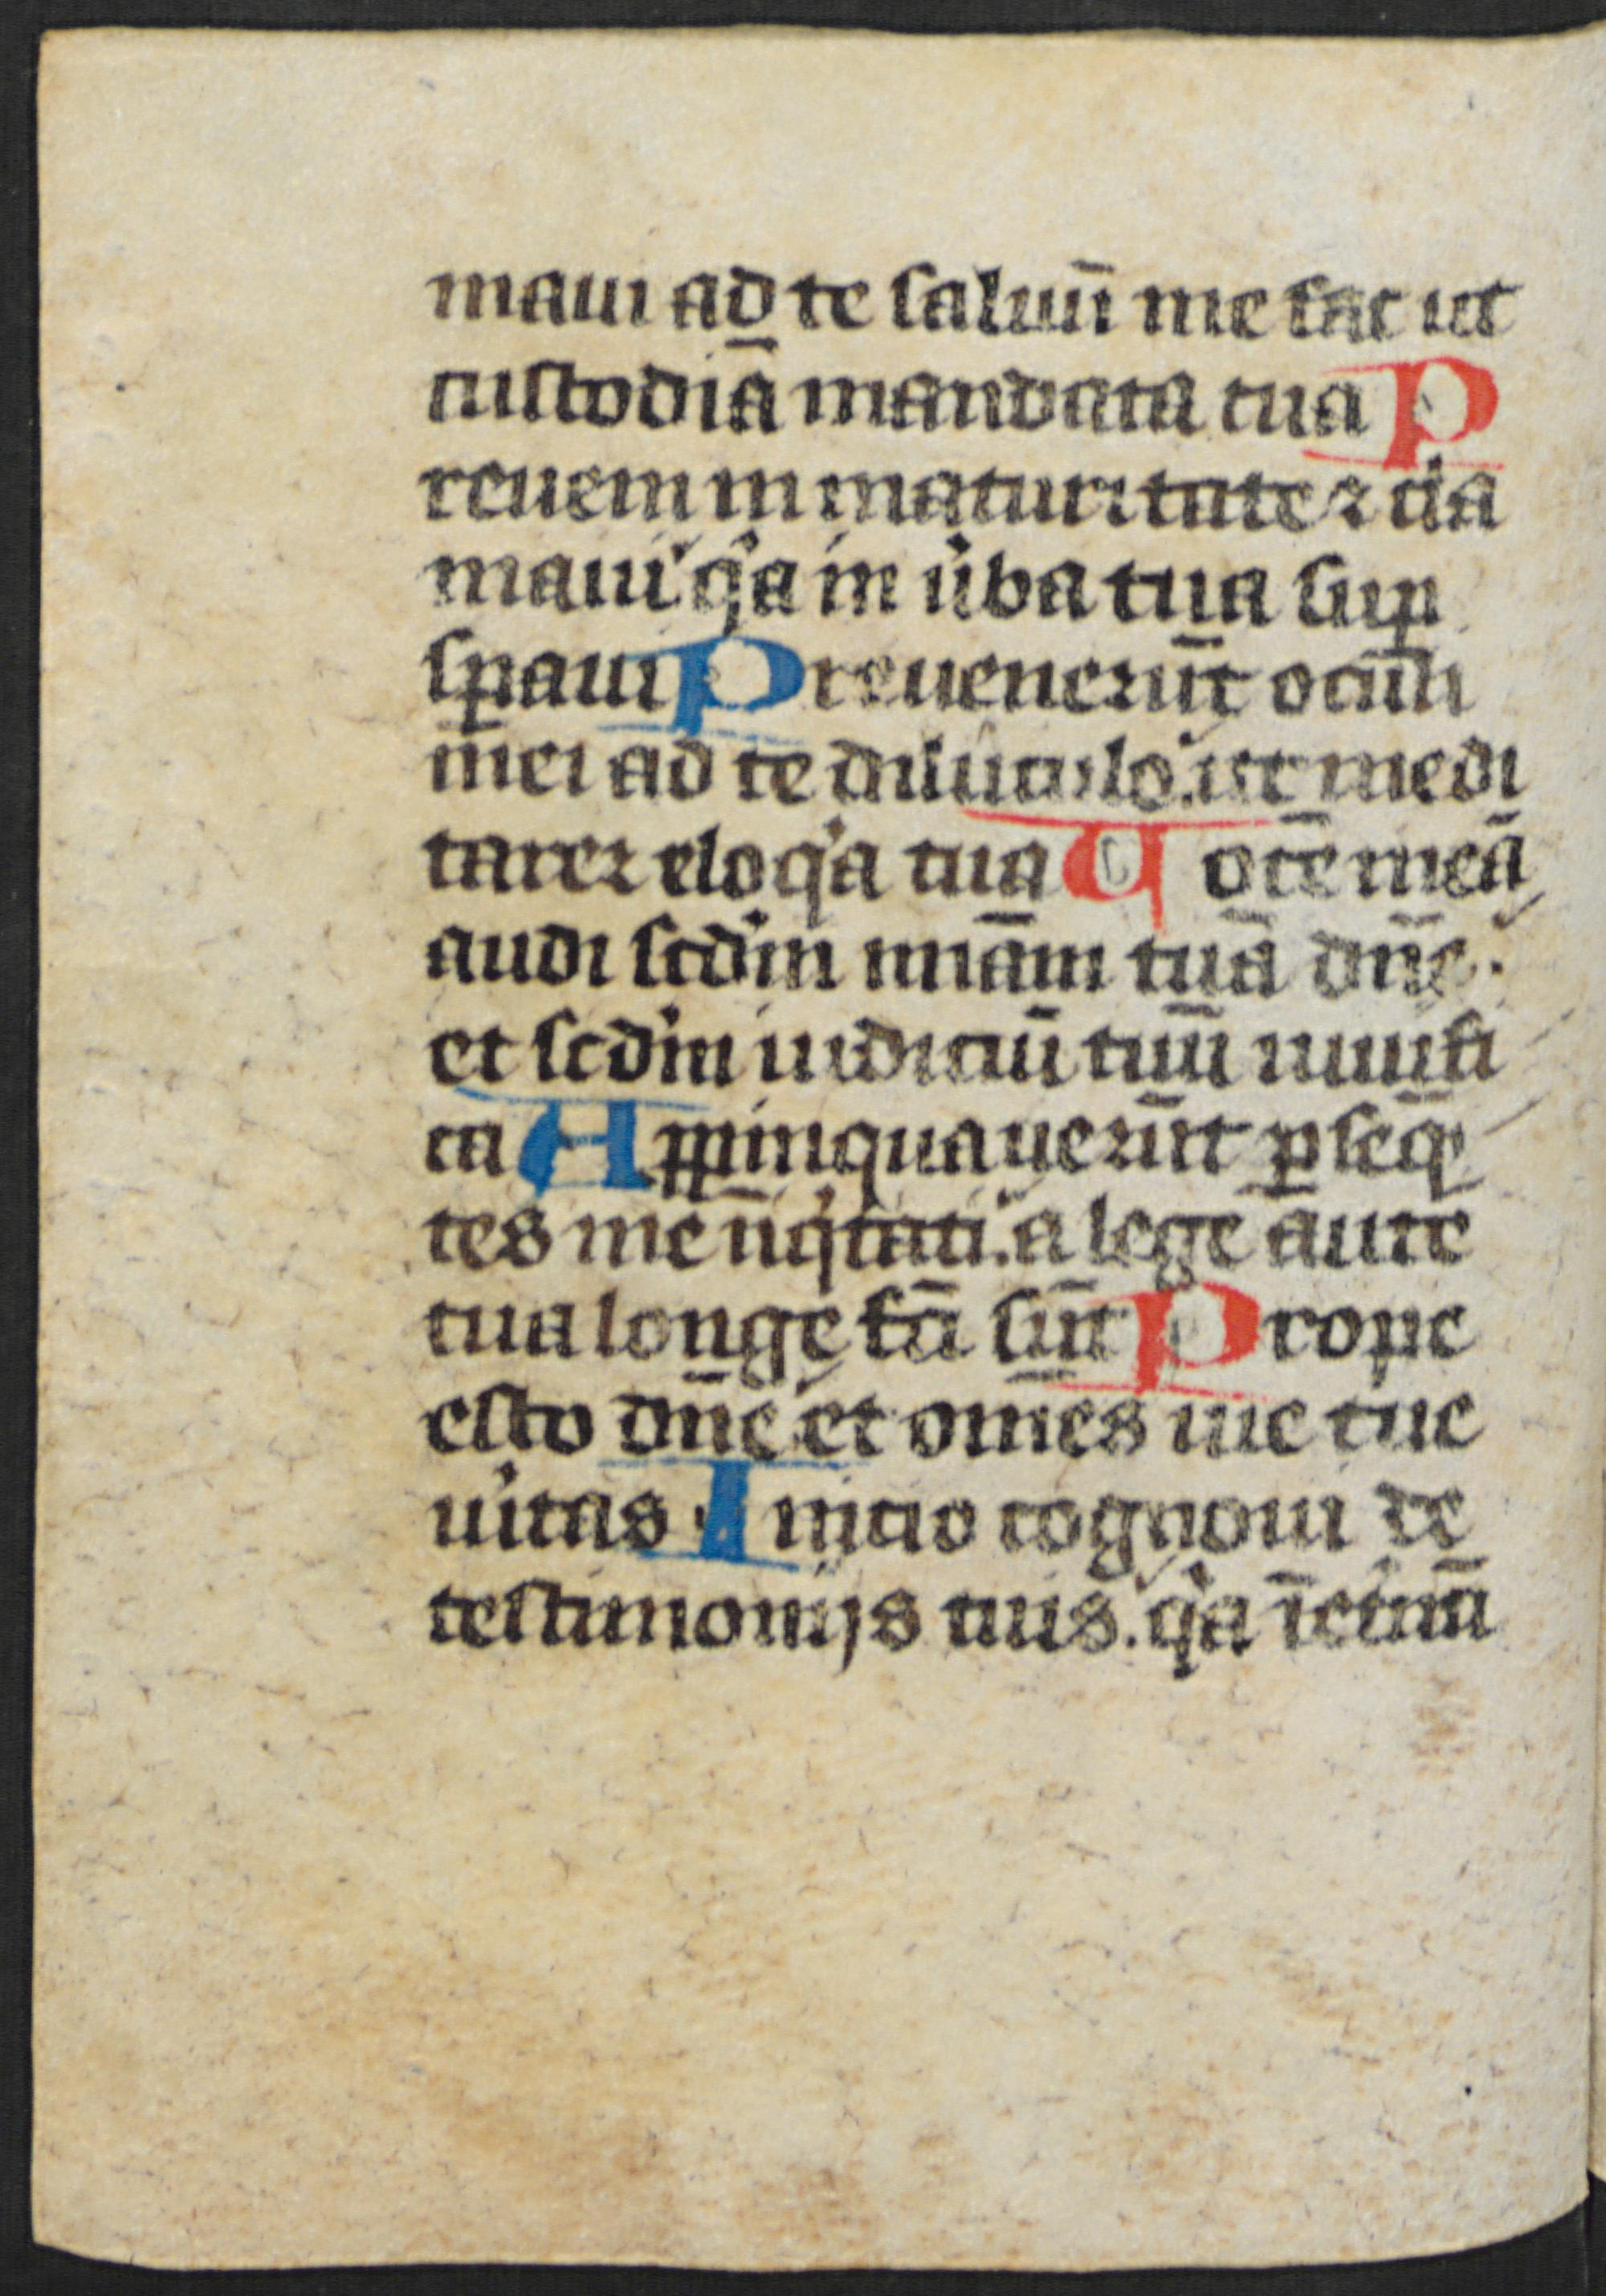 maui ad te saluū me fac ut
custodiā mandata tua P
reueni in maturitate ⁊ cla
maui qͥa in úba tua suꝑ
sꝑaui Preuenerūt oculi
mei ad te diluculo. ut medi
tarer eloqͥa tua Uocē meā
audi scdm miām tuā dn̄e.
et scdm iudiciū tuū uiuifi
ca Aꝓpinquauerūt ꝑseq̄
tes me iniqͥtati. a lege aute
tua longe fcī sūt Prope
esto dn̄e et om̄es uie tue
uitas Inicio cognoui de
testimonijs tuis. qͥa ī etnū